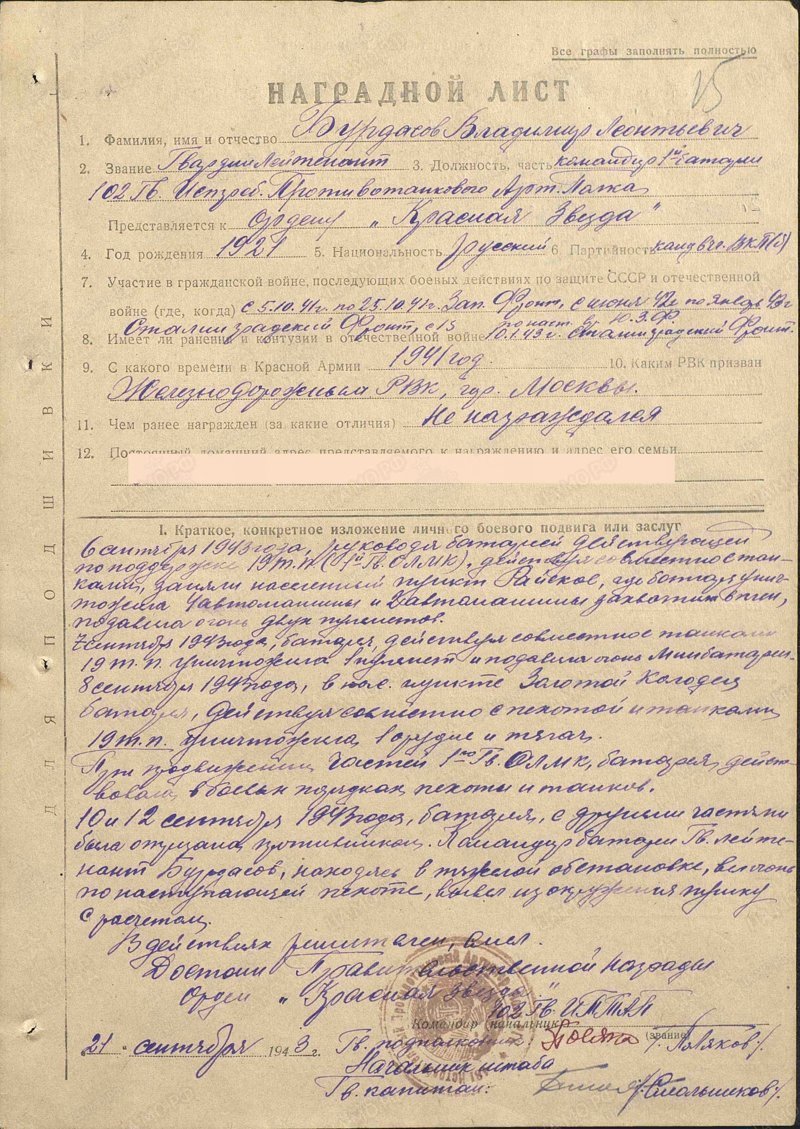 Все графы заполнять полностью
15
НАГРАДНОЙ ЛИСТ
1. Фамилия, имя и отчество Бурдасов Владимир Леонтьевич
2. Звание Гвардии Лейтенант 3. Должность, часть командир 1й батареи
102 Гв. Истреб. Противотанкового Арт. Полка
Представляется к ордену „Красная Звезда"
4. Год рождения 1921 5. Национальность русский 6. Партийность канд. вчл. ВКП(б)
7. Участие в гражданской войне, последующих боевых действиях по защите СССР и отечественной
войне (где, когда) с 5.10.41г. по 25.10.41г. Зап. Фронт, с июня 42г. по Январь 43г
Сталинградский Фронт, с 13 по наст. в. Ю.З.Ф
8. Имеет ли ранения и контузии в отечественной войне 10.1.43г. Сталинградский Фронт.
9. С какого времени в Красной Армии 1941 год. 10. Каким РВК призван
Железнодорожным РВК, гор. Москвы.
11. Чем ранее награжден (за какие отличия) Не награждался
12. Постоянный домашний адрес представляемого к награждению и адрес его семьи
ДЛЯ ПОДШИВКИ
I. Краткое, конкретное изложение личного боевого подвига или заслуг
6 сентября 1943 года, руководя батареей действующей
по поддержке 19 т.п (1й Гв. ОЛМК), действуя совместно с тан-
ками, заняли населенный пункт Райское, где батарея унич-
тожила 4 автомашины и 2 автомашины захватили в плен,
подавила огонь двух пулеметов.
7 сентября 1943 года, батарея, действуя совместно с танками
19 т.п. уничтожила 1 пулемет и подавила огонь Минбатареи.
8 сентября 1943 года, в нас. пункте Золотой Колодец
батарея, действуя совместно с пехотой и танками
19 т.п. уничтожила 1 орудие и тягач.
При продвижении частей 1го Гв. ОЛМК, батарея, дейст-
вовала в боевых порядках пехоты и танков.
10 и 12 сентября 1943 года, батарея, с другими частями
была отрезана противником. Командир батареи Гв. лейте-
нант Бурдасов, находясь в тяжелой обстановке, вел огонь
по наступающей пехоте, вывел из окружения пушку
с расчетом.
В действиях решителен, смел.
Достоин Правительственной Награды
Орден „Красная Звезда"
102 Гв. ИПТАП
Командир (начальник)
21 сентября 1943 г. Гв. подполковник (звание) /Поляков/.
Начальник штаба
Гв. капитан: /Смольников/.